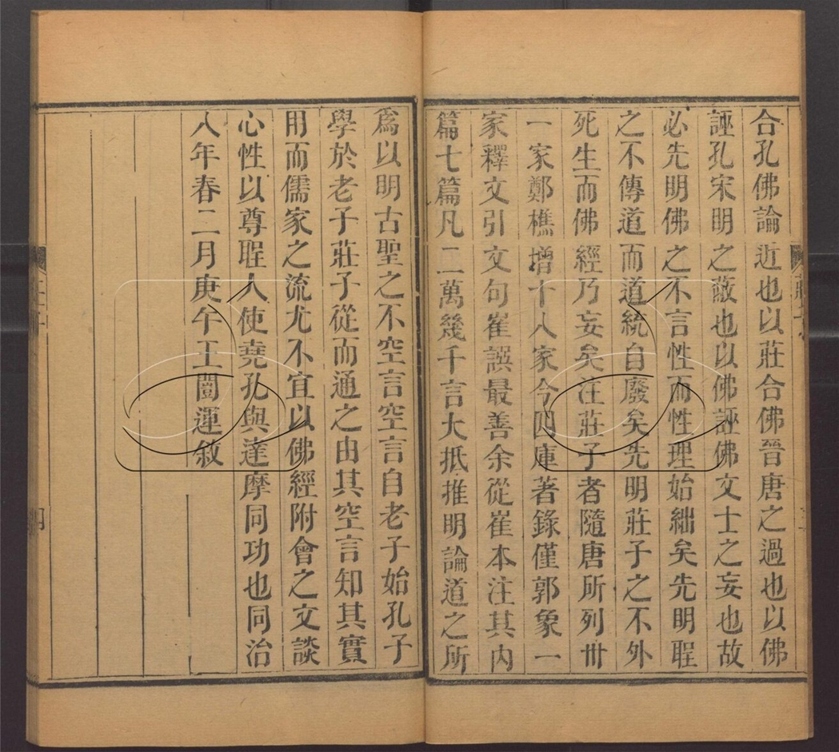 合孔佛論近也以莊合佛晉唐之過也以佛
誣孔宋明之蔽也以佛誣佛文士之妄也故
必先明佛之不言性而性理始絀矣先明聖
之不傳道而道統自廢矣先明莊子之不外
死生而佛經乃妄矣注莊子者隨唐所列卅
一家鄭樵增十八家今四庫著錄僅郭象一
家釋文引文句崔譔最善余從崔本注其內
篇七篇凡二萬幾千言大抵推明論道之所
爲以明古聖之不空言空言自老子始孔子
學於老子莊子從而通之由其空言知其實
用而儒家之流尤不宜以佛經附會之文談
心性以尊聖人使堯孔與達摩同功也同治
八年春二月庚午王闓運敘
莊子
四